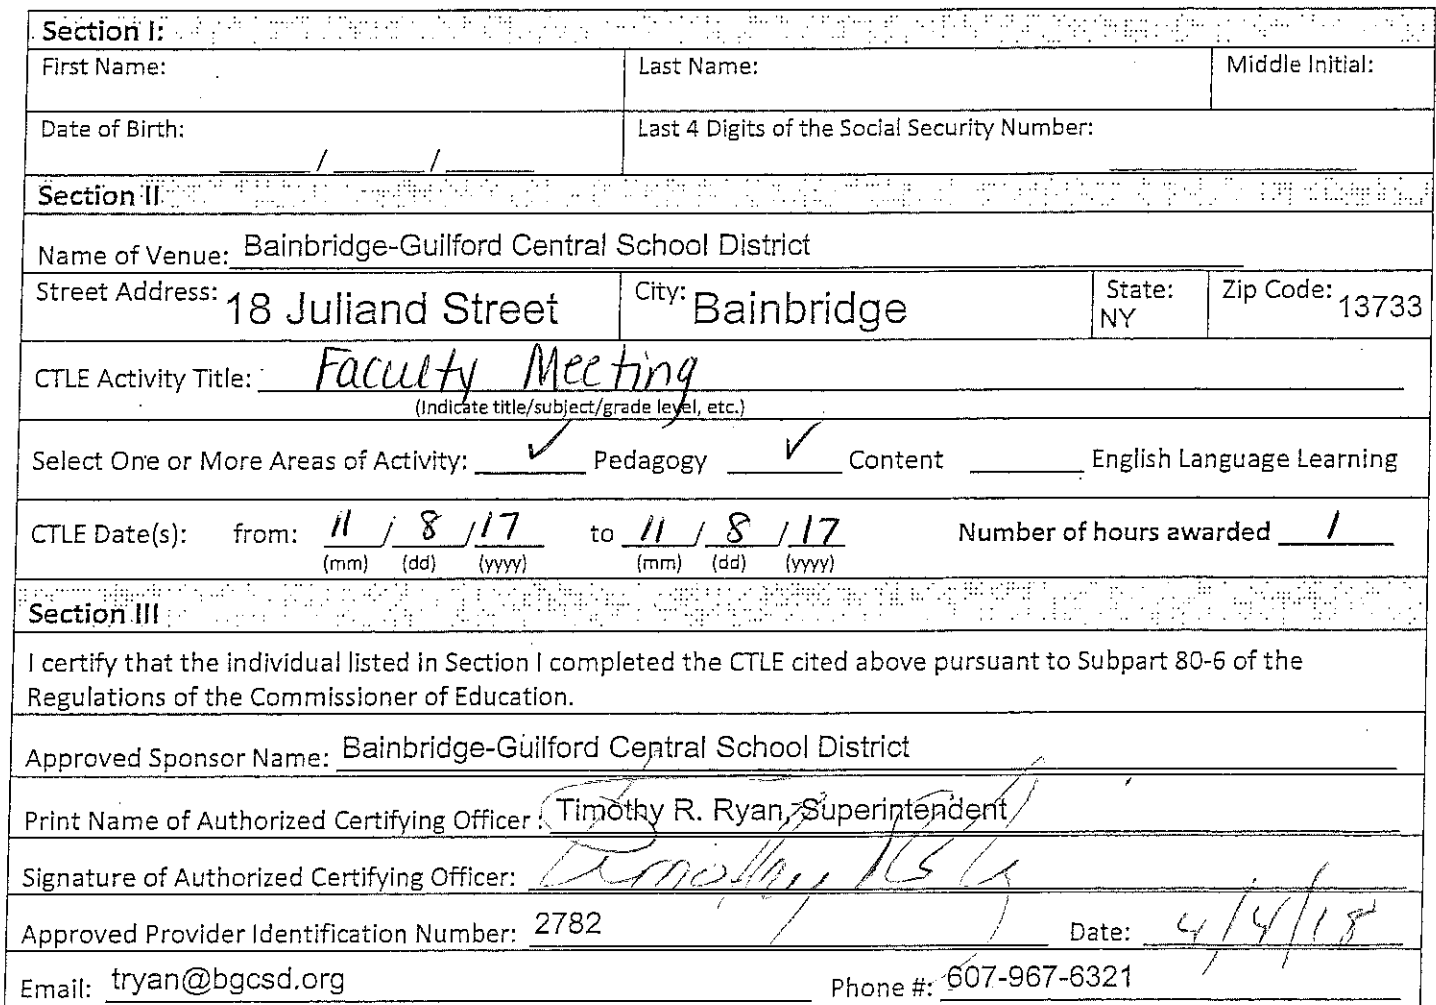 Section I:
First Name: Last Name: Middle Initial:
Date of Birth: ____/____/____ Last 4 Digits of the Social Security Number: ____
Section II
Name of Venue: Bainbridge-Guilford Central School District
Street Address: 18 Juliand Street City: Bainbridge State: NY Zip Code: 13733
CTLE Activity Title: Faculty Meeting
(Indicate title/subject/grade level, etc.)
Select One or More Areas of Activity: ✓ Pedagogy ✓ Content ____ English Language Learning
CTLE Date(s): from: 11/8/17 to 11/8/17 Number of hours awarded 1
(mm) (dd) (yyyy) (mm) (dd) (yyyy)
Section III
I certify that the individual listed in Section I completed the CTLE cited above pursuant to Subpart 80-6 of the
Regulations of the Commissioner of Education.
Approved Sponsor Name: Bainbridge-Guilford Central School District
Print Name of Authorized Certifying Officer: Timothy R. Ryan, Superintendent
Signature of Authorized Certifying Officer: Timothy R
Approved Provider Identification Number: 2782 Date: 4/4/18
Email: tryan@bgcsd.org Phone #: 607-967-6321